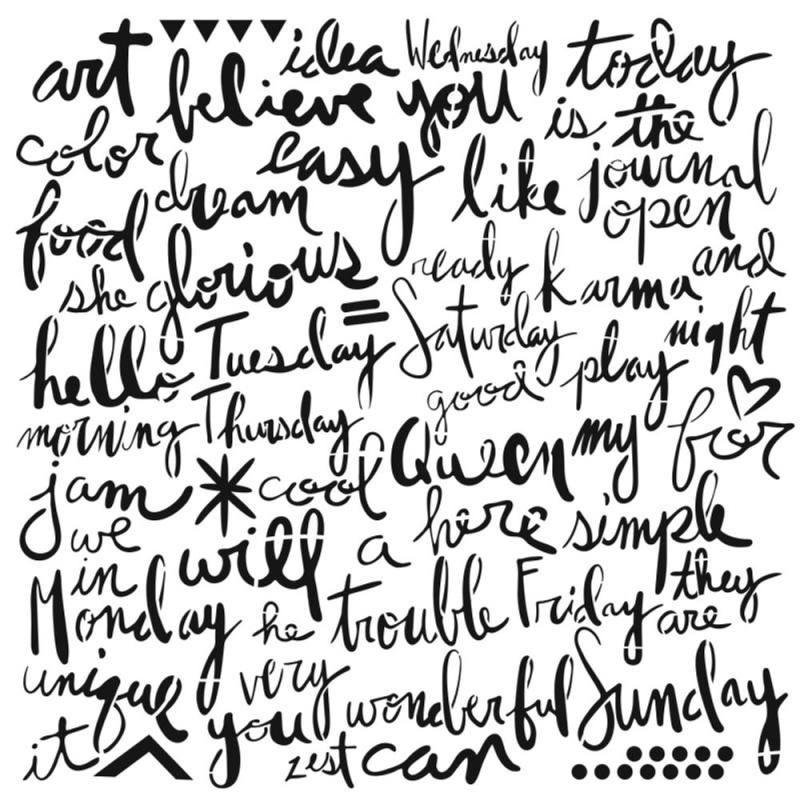 art idea Wednesday today
believe you is the
color easy like journal
food dream open
she glorious ready karma and
hello Tuesday = Saturday night
good play
morning Thursday Queen my for
jam cool
we will a here simple
in they
Monday he trouble Friday are
unique very wonderful Sunday
it you zest can